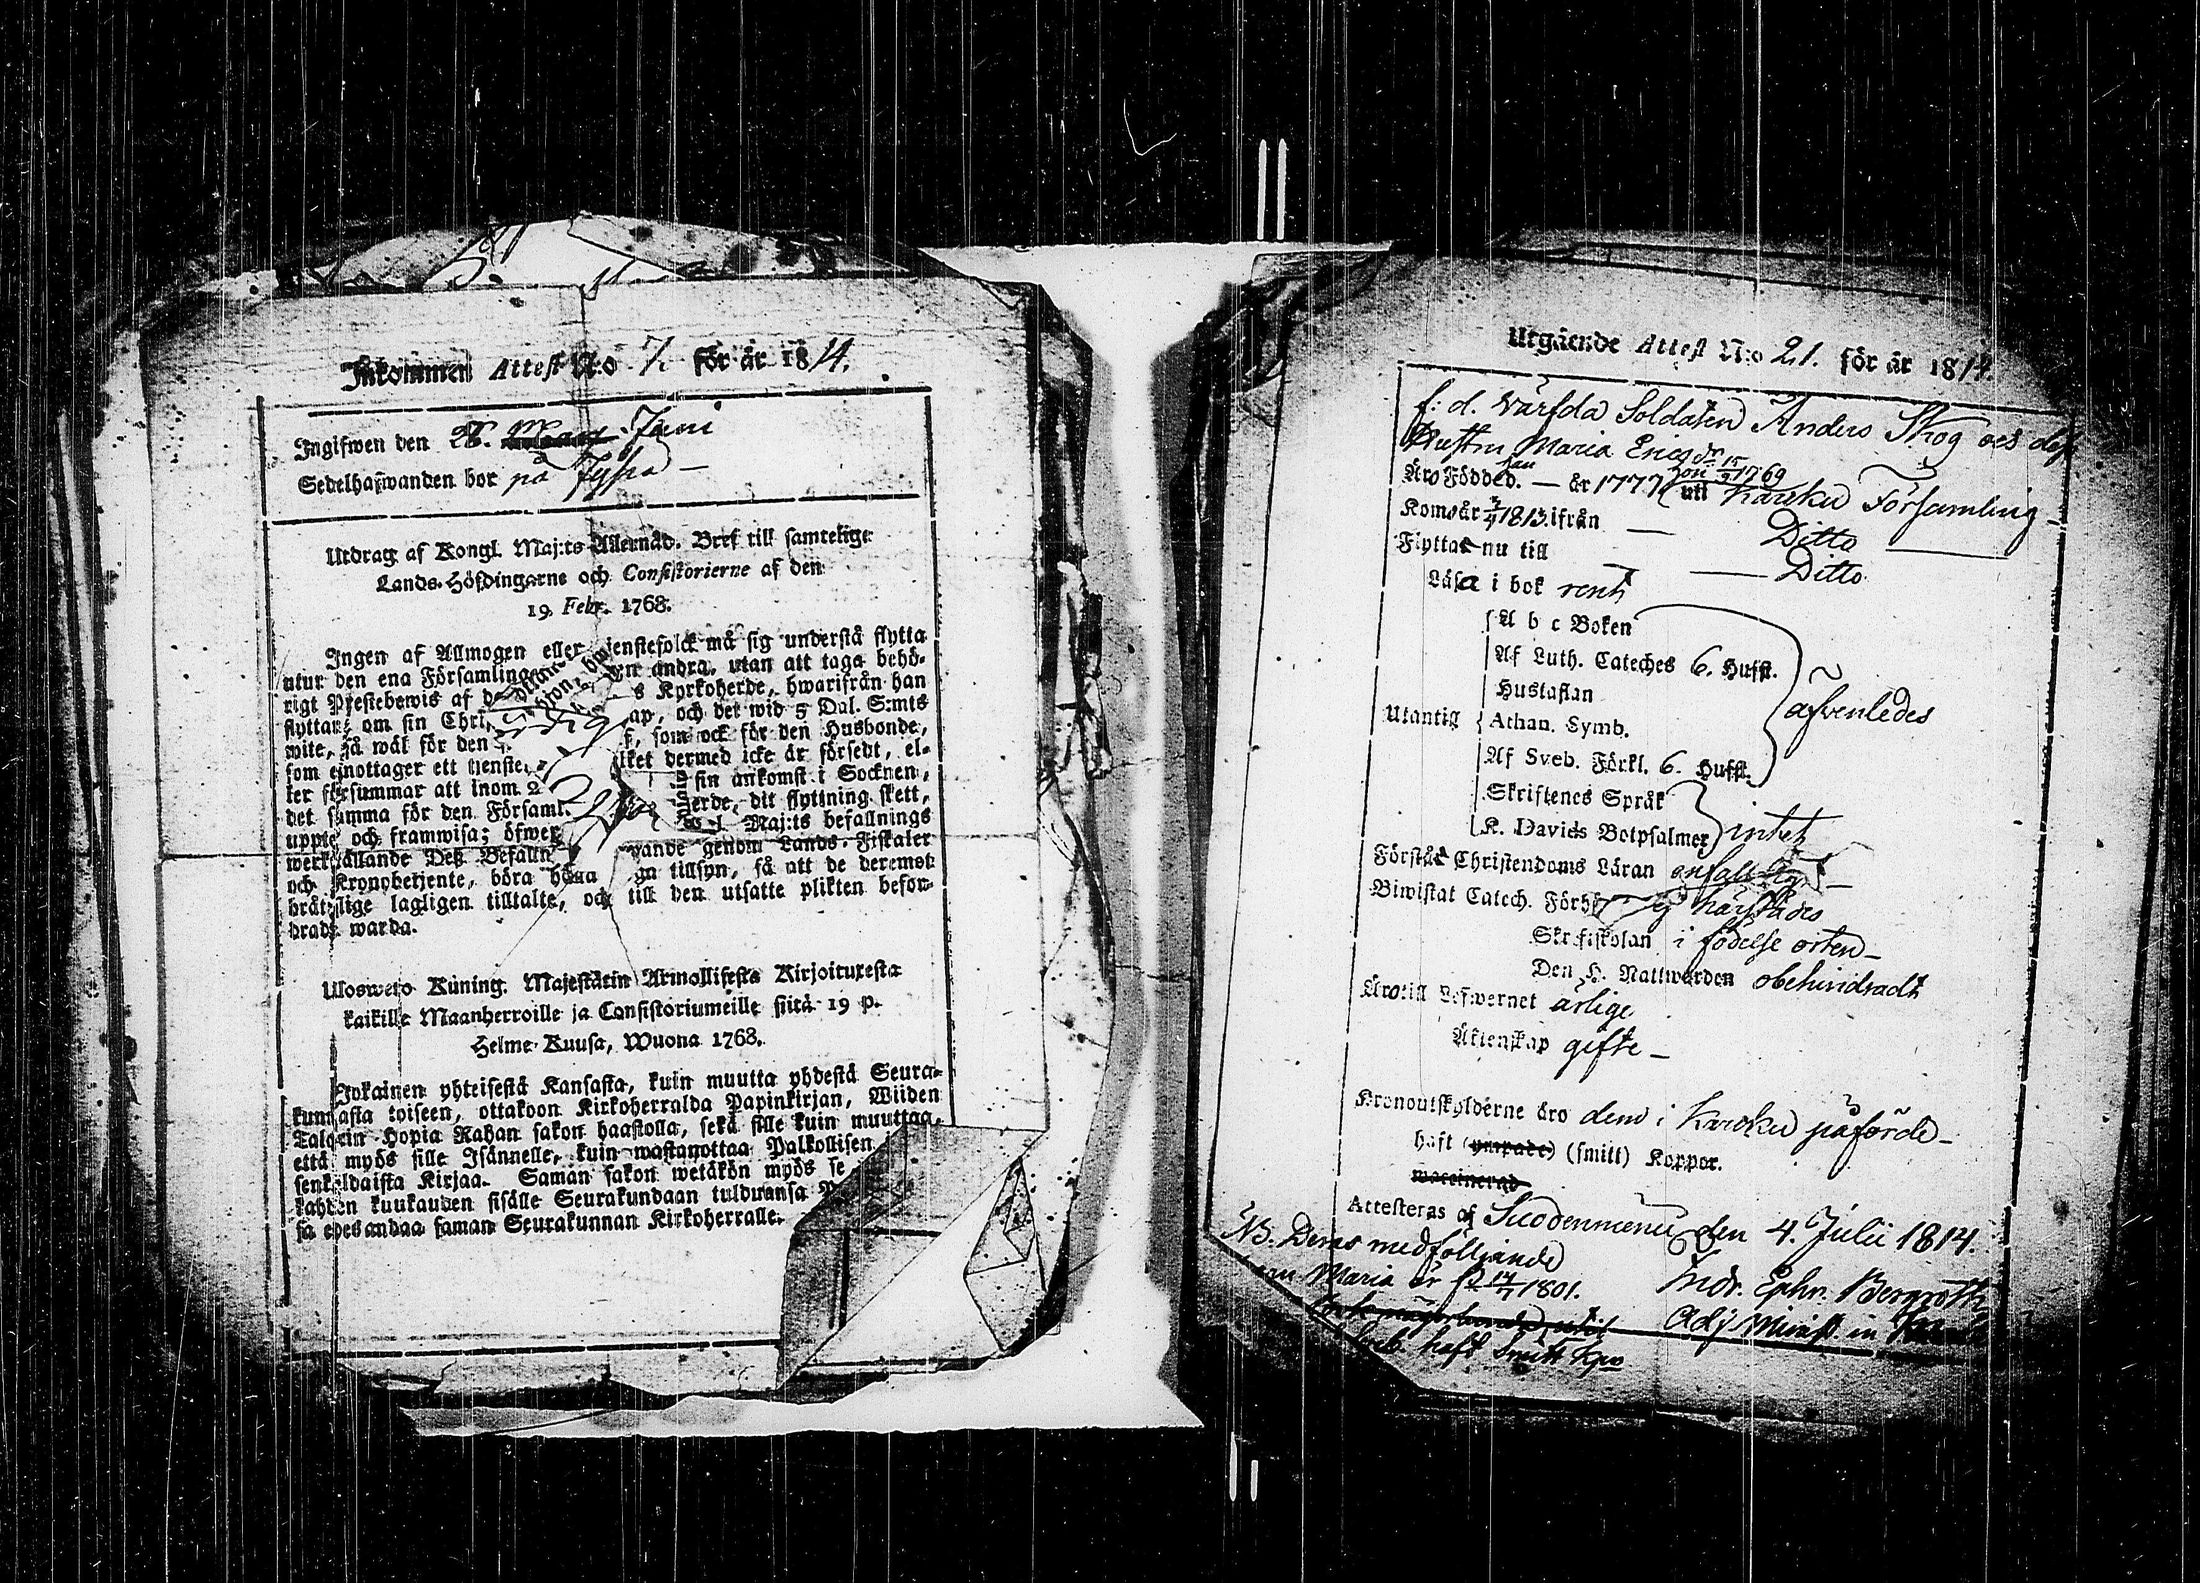 Inkommen Attest N:o 7. för år 1814.
Ingifwen den 28. Juni
Sedelhafwanden bor på
Utdrag af Kongl. Maj:ts Allernåd. Bref till samtelige
Lands-Höfdingarne och Consistorierne af den
19. Febr. 1768.
Ingen af Allmogen eller jenstefolck må sig understå flytta
utur den ena Församling en andra, utan att taga behö-
rigt Prestebewis af d s Kyrkoherde, hwarifrån han
flyttar, om sin Chri ap, och det wid 5 Dal. S:mts
wite, så wäl för den , som ock för den Husbonde,
som emottager ett tjenste lket dermed icke är försedt, el-
ler försummar att inom 2 sin ankomst i Socknen,
det samma för den Församl. erde, dit flyttning skett,
uppte och framwisa; öfwer Maj:ts befallnings
werkställande Deß Befalln wande genom Lands-Fiskaler
och Kronobetjente, böra hafwa gn tillsyn, så att de deremot
brätslige lagligen tilltalte, och till den utsatte plikten beford-
brade warda.
Ulosweto Kuning. Majestätin Armollisesta Kirjoituxesta
kaikille Maanherroille ja Consistoriumeille siitä 19 p.
Helme-Kuusa, Wuona 1768.
Jokainen yhteisestä Kansasta, kuin muutta yhdestä Seura-
kunnasta toiseen, ottakoon Kirkoherralda Papinkirjan, Wiiden
Talarin Hopia Rahan sakon haastolla, sekä sille kuin muuttaa,
että myös sille Isännelle, kuin wastanottaa Palkollisen
senkaldaista Kirjaa. Saman sakon wetäkön myös se
kahden kuukauden sisälle Seurakundaan tulduansa
sa edesandaa saman Seurakunnan Kirkoherralle.
Utgående Attest N:o 21. för år 1814.
f: d. Värfda Soldaten Anders Skog och deß
Hustru Maria Ericsdr
Äro Födde d. — år 1777 hon 15/3 1769 uti Karku Församling
Komo år 3/4 1813. ifrån — Ditto —
Flytta nu till — Ditto
Läsa i bok rent
A b c Boken
Af Luth. Cateches 6. Hufst.
Hustaflan
Utantig Athan. Symb. äfvenledes
Af Sveb. Förkl. 6. Hufst.
Skriftenes Språk
K. Davids Botpsalmer intet
Förstå Christendoms Läran enfaldigt —
Biwistat Catech. Förh ej härstädes
Skriftskolan i födelse orten —
Den H. Nattwarden obehindradt
Äro till Lefwernet ärlige
Äktenskap gifte —
Kronoutskylderne äro dem i Karku påförde —
haft (smitt) Koppor.
Attesteras af Suodenniemi den 4. Julii 1814.
NB. Deras medföljande
Maria är f. 14/7 1801. Andr. Ephr. Bergroth
Adj. Minist. in
haft Smitt Kpr